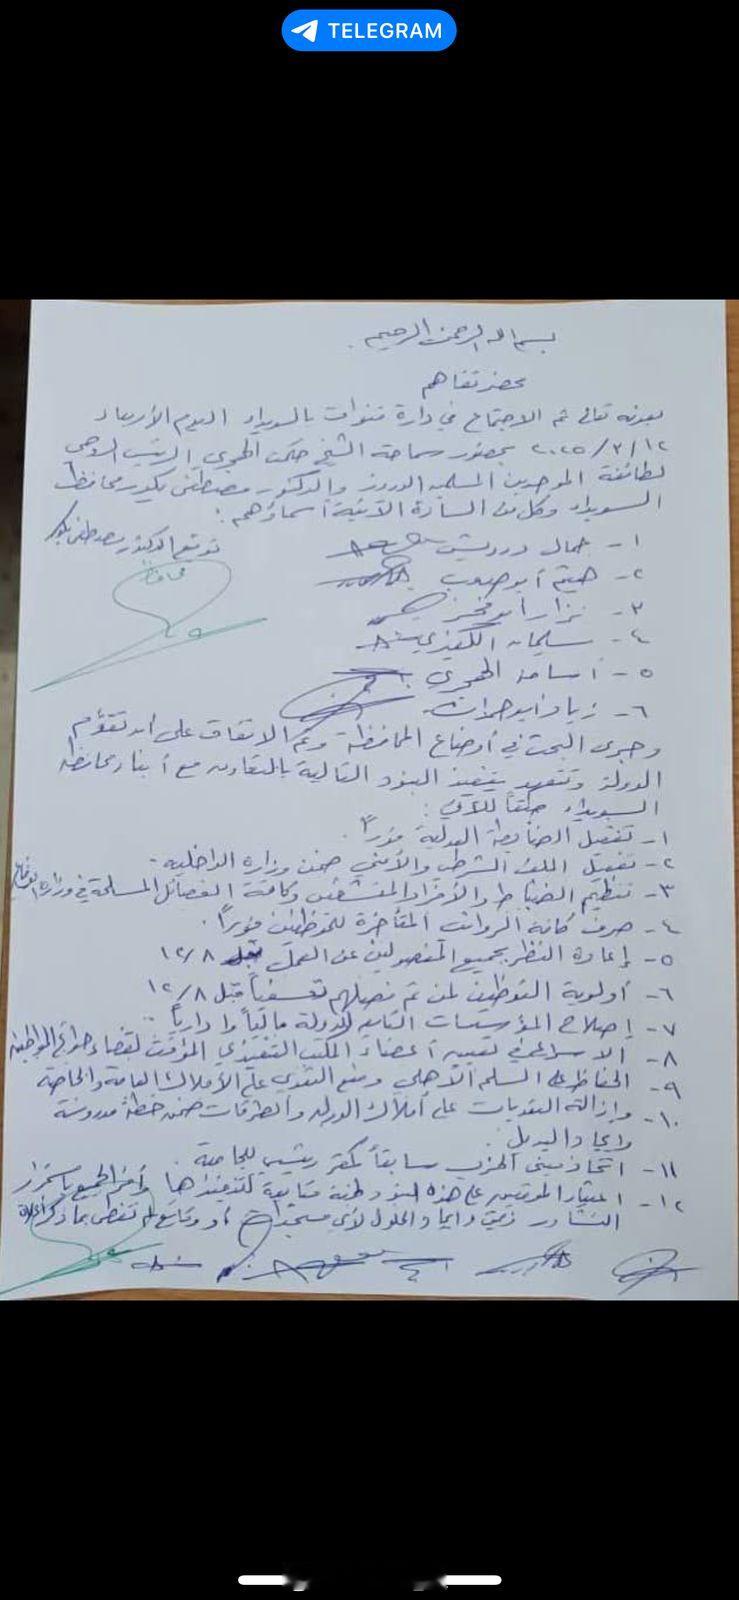 TELEGRAM
بسم الله الرحمن الرحيم.
محضر تفاهم
بعونه تعالى تم الاجتماع في دارة قنوات بالسويداء اليوم الأربعاء
٢٠٢٥/٣/١٢ بحضور سماحة الشيخ حكمت الهجري الرئيس الروحي
لطائفة الموحدين المسلمين الدروز والدكتور مصطفى بكور محافظ
السويداء وكل من السادة الآتية أسماؤهم:
توقيع الدكتور مصطفى بكور
محافظ
١- جمال درويش
٢- هيثم أبو صعب
٣- نزار أبو فخر
٤- سليمان الكفيري
٥- أسامة الهجري
٦- زياد أبو حمدان
وجرى البحث في أوضاع المحافظة وتم الاتفاق على أن تقوم
الدولة وتتعهد بتنفيذ البنود التالية بالتعاون مع أبناء محافظة
السويداء للآتي:
١- تفعيل الضابطة العدلية فوراً.
٢- تفعيل الملف الشرطي والأمني ضمن وزارة الداخلية.
٣- تنظيم الضباط والأفراد المنشقين وكافة الفصائل المسلحة في وزارة الدفاع
٤- صرف كافة الرواتب المتأخرة للموظفين فوراً.
٥- إعادة النظر بجميع المفصولين عن العمل قبل ١٢/٨
٦- أولوية التوظيف لمن تم فصلهم تعسفياً قبل ١٢/٨
٧- إصلاح المؤسسات التابعة للدولة مالياً وإدارياً.
٨- الاسراع في تعيين أعضاء المكتب التنفيذي المؤقت لقضاء حوائج المواطنين
٩- الحفاظ على السلم الأهلي ومنع التعدي على الأملاك العامة والخاصة
١٠- وإزالة التعديات على أملاك الدولة والطرقات ضمن خطة مدروسة
وايجاد البديل.
١١- اتخاذ مبنى الحزب سابقاً لمقر رئيسي للجامعة.
١٢- اعتبار الموقعين على هذه البنود لجنة متابعة لتنفيذها وأقر الجميع باستمرار
التشاور وايجاد الحلول لأي مستجدات أو وقائع لم تغطى بما ذكر أعلاه